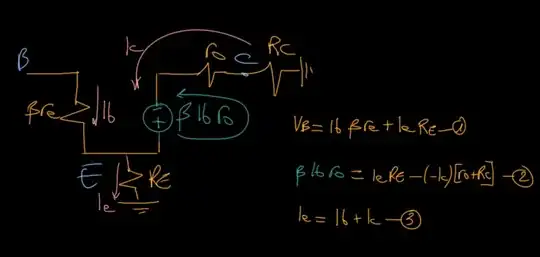 Ic ro C Rc
B
βre Ib βIbro
E RE
Ie
VB = Ib βre + Ie RE — ①
βIbro = Ie RE - (-Ic)[ro+Rc] — ②
Ie = Ib + Ic — ③